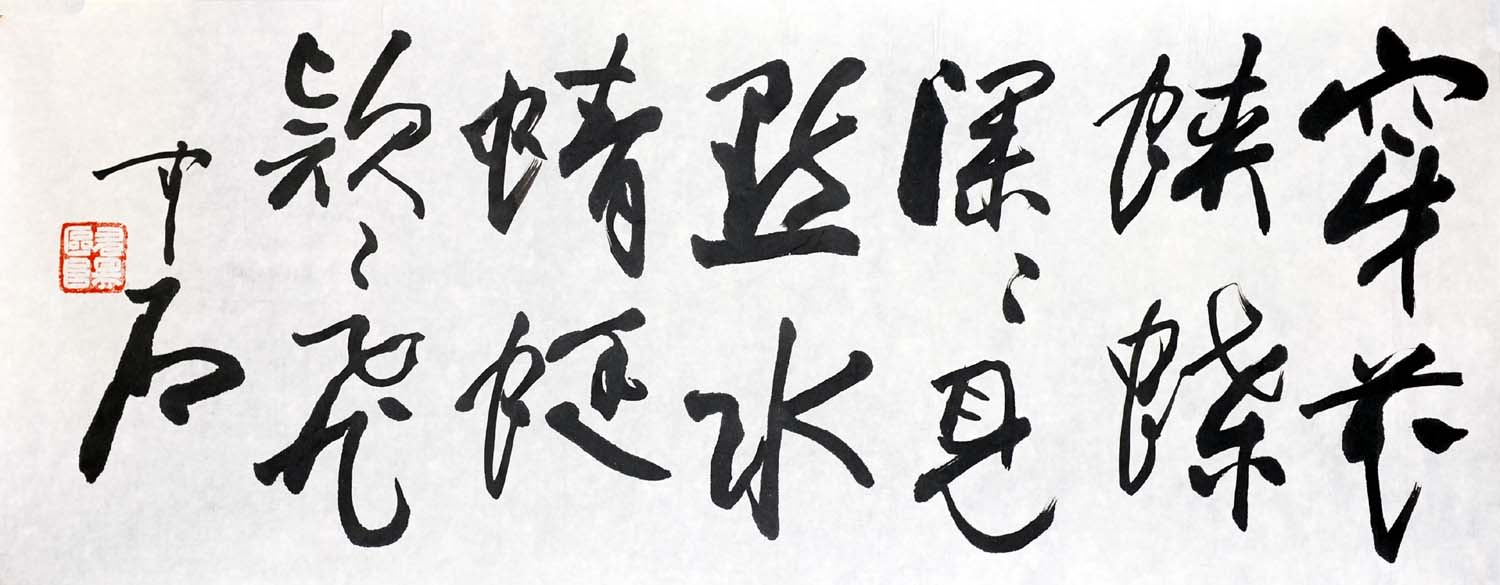 穿花
蛺蝶
深〻見
點水
蜻蜓
款〻飛
中石